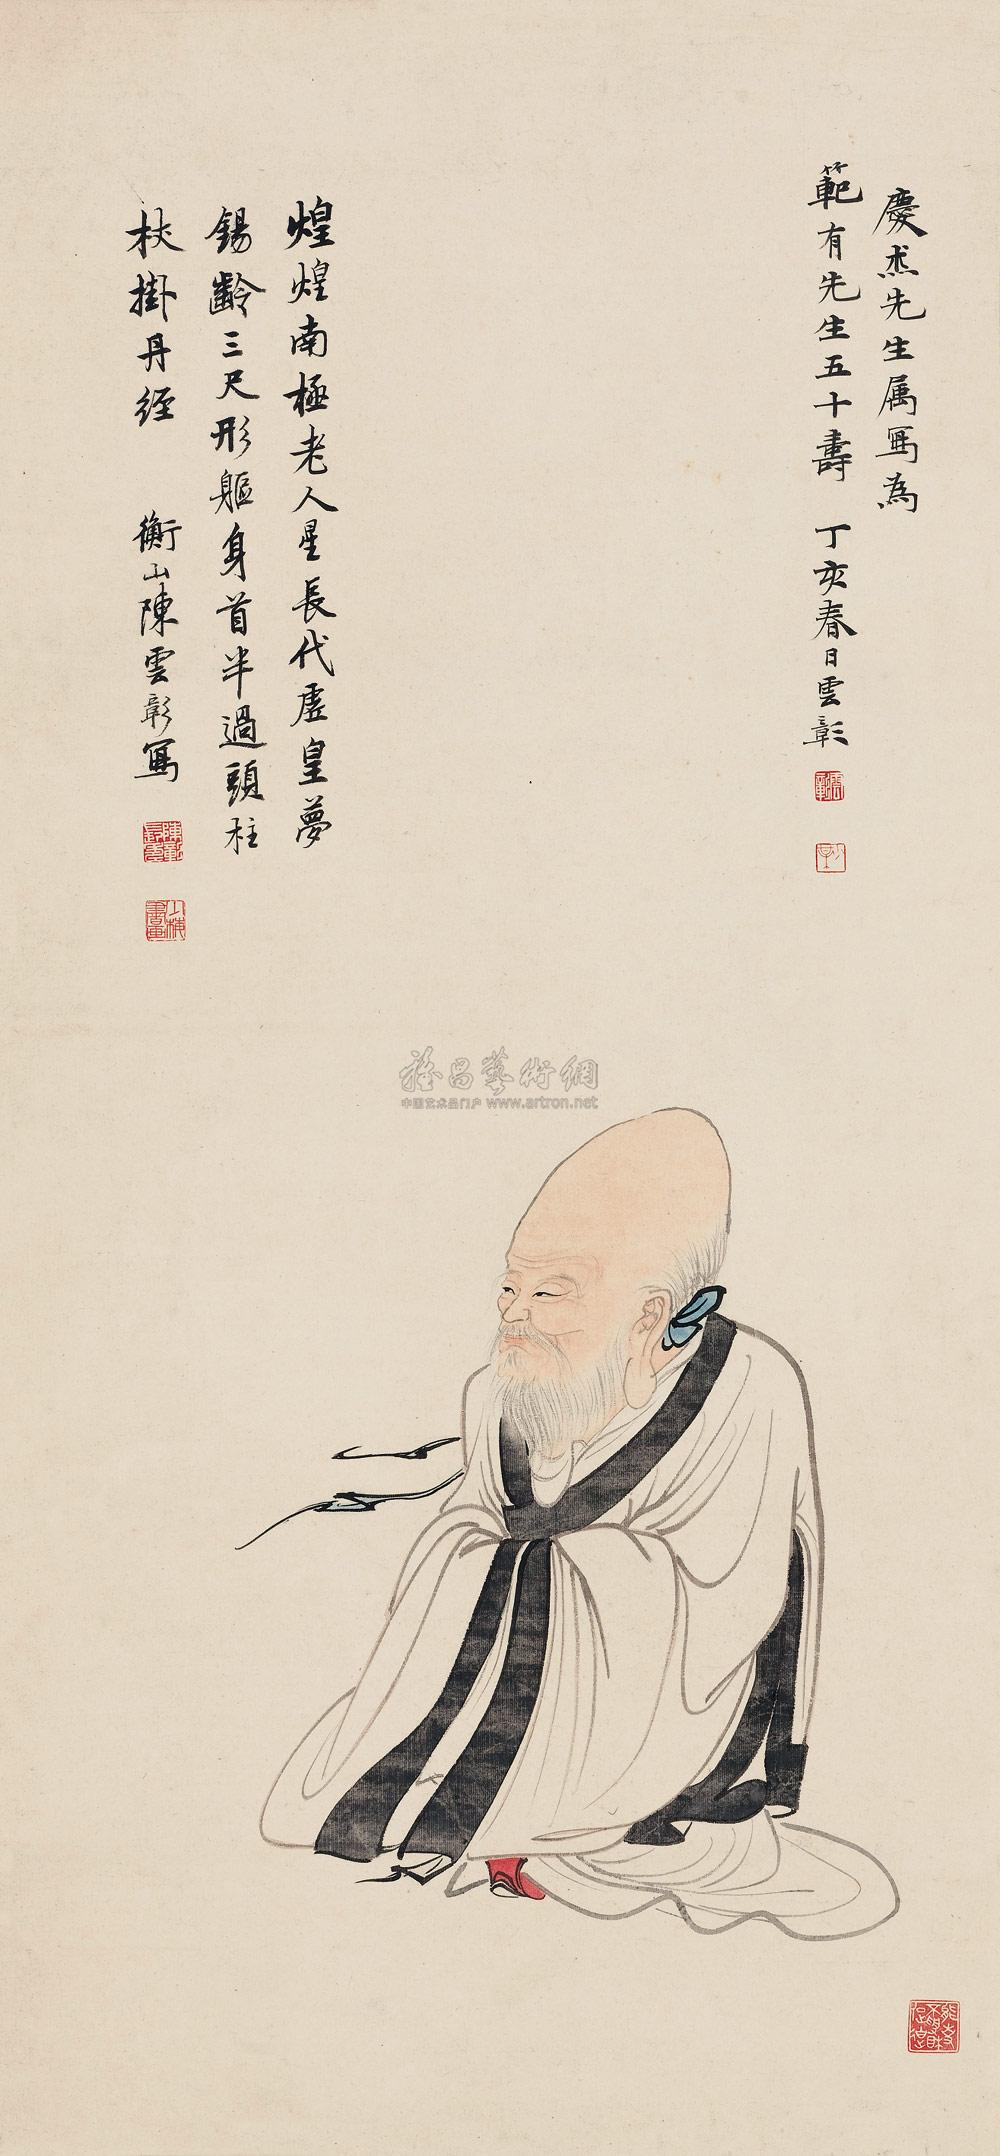 慶杰先生属寫為
範有先生五十壽 丁亥春日雲彰
煌煌南極老人星長代虛皇夢
錫齡三尺形軀身首半過頭柱
杖掛丹經 衡山陳雲彰寫
雅昌藝術網
中国艺术品门户 www.artron.net